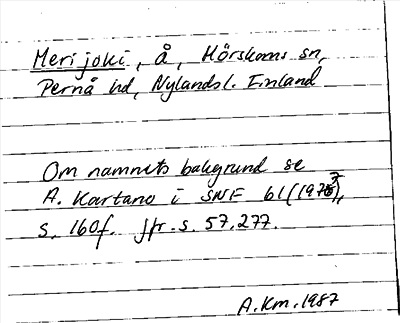 Merijoki, å, Mörskoms sn,
Pernå hd, Nylands l. Finland
Om namnets bakgrund se
A. Kartano i SNF 61 (197?),
s. 160f. jfr. s. 57, 277.
A.Km. 1987